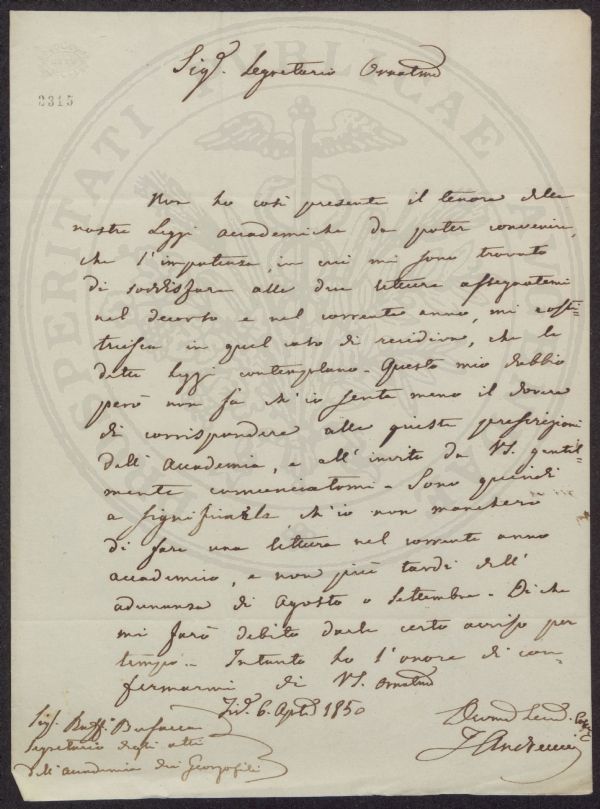 2315
Sigr. Segretario Ornatmo
Non ho così presente il tenore delle
nostre Leggi accademiche da poter convenire,
che l'impotenza, in cui mi sono trovato
di soddisfare alle due letture assegnatemi
nel decorso e nel corrente anno, mi costi-
tuisca in quel caso di recidiva, che le
dette Leggi contemplano. Questo mio dubbio
però non fa ch'io senta meno il dovere
di corrispondere alle giuste prescrizioni
dell'Accademia, e all'invito da VS. gentil-
mente comunicatomi. Sono quindi
a significarle ch'io non mancherò
di fare una lettura nel corrente anno
accademico, e non più tardi dell'
adunanza di Agosto o Settembre. Di che
mi farò debito darle certo avviso per
tempo. Intanto ho l'onore di con-
fermarmi di VS. Ornatmo
6. 1850
Sigr. Raff. Busacca
Segretario degli atti
dell'accademia dei Georgofili
PROSPERITATI PUBLICAE